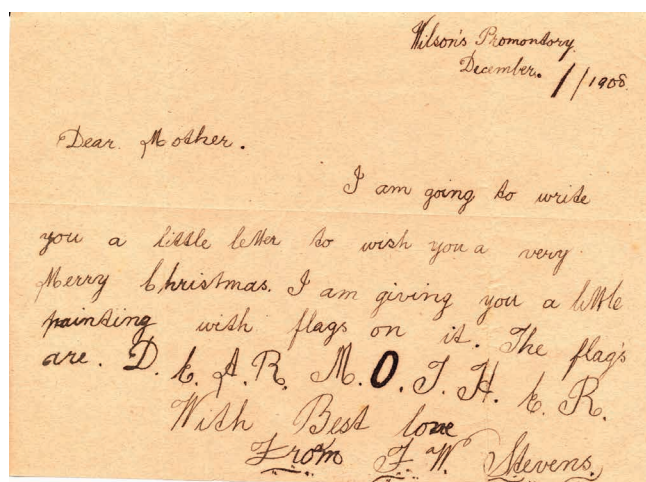 Wilson's Promontory.
December. 1/1908.
Dear Mother.
I am going to write
you a little letter to wish you a very
Merry Christmas. I am giving you a little
painting with flags on it. The flags
are. D. E. A. R. M. O. T. H. E. R.
With Best love
From F. W. Stevens.